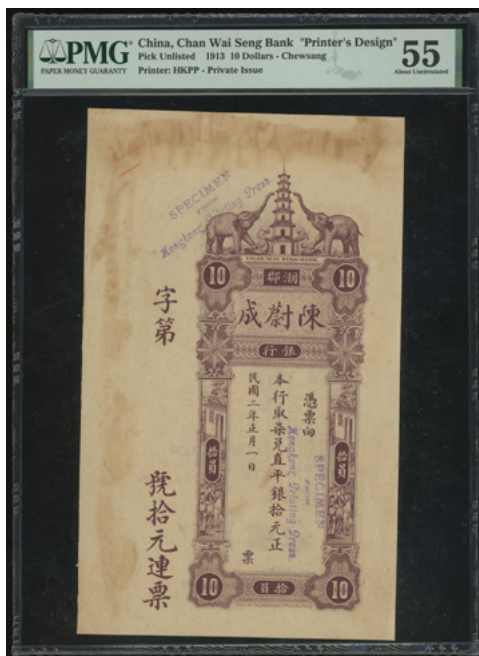 PMG
PAPER MONEY GUARANTY
China, Chan Wai Seng Bank "Printer's Design"
Pick Unlisted 1913 10 Dollars - Chewsang
Printer: HKPP - Private Issue
55
About Uncirculated
SPECIMEN
Hongkong Printing Press
CHAN WAI SENG BANK
10
潮郡
10
陳蔚成
銀行
憑票向
本行取柒兌直平銀拾元正
民國二年正月一日
票
SPECIMEN
Hongkong Printing Press
拾員
拾員
10
拾員
10
字第
號拾元連票